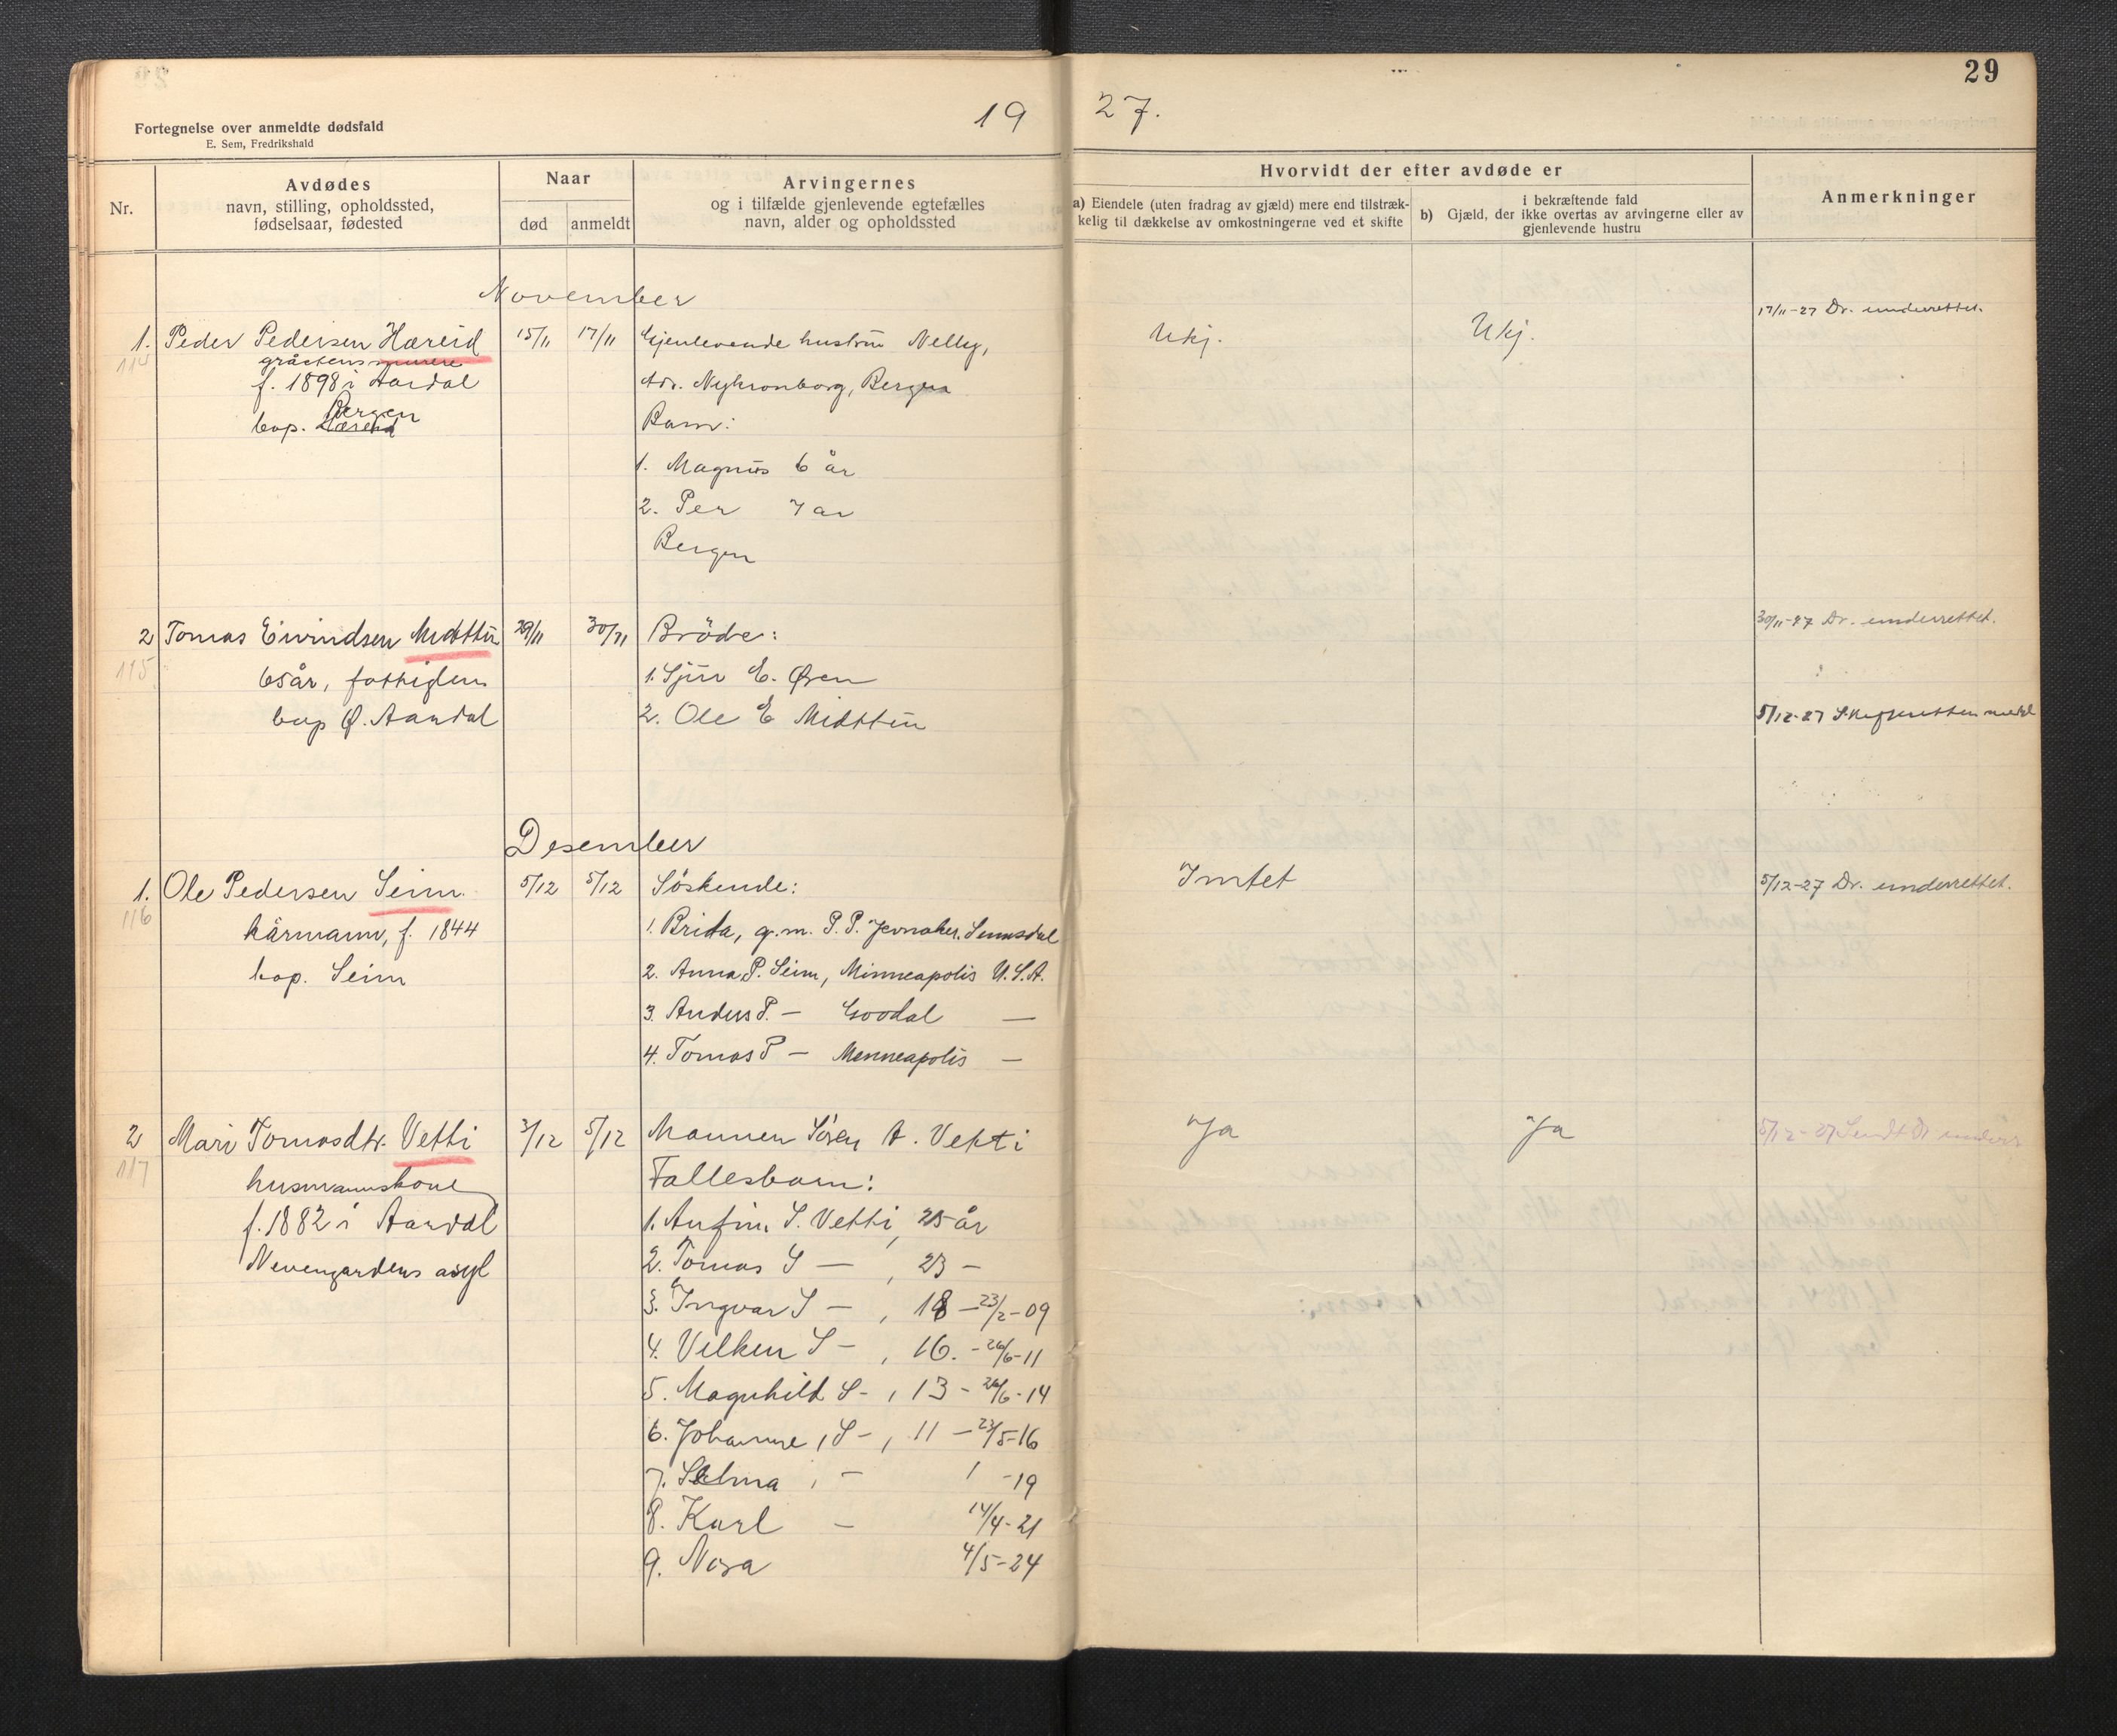 29
19 27.
Fortegnelse over anmeldte dødsfald
E. Sem, Fredrikshald
Nr.
Avdødes
navn, stilling, opholdssted,
fødselsaar, fødested
Naar
død
anmeldt
Arvingernes
og i tilfælde gjenlevende egtefælles
navn, alder og opholdssted
Hvorvidt der efter avdøde er
a) Eiendele (uten fradrag av gjæld) mere end tilstræk-
kelig til dækkelse av omkostningerne ved et skifte
i bekræftende fald
b) Gjæld, der ikke overtas av arvingerne eller av
gjenlevende hustru
Anmerkninger
November
17/11-27 Dr. underrettet.
1. Peder Pedersen Hæreid 15/11 17/11 Gjenlevende hustru Nelly, Ukj. Ukj.
gråstensmurer
f. 1898 i Aardal
adr. Nykronborg, Bergen
Bergen
bop.
Barn:
1. Magnus 6 år
2. Per 7 år
Bergen
30/11-27 Dr. underrettet.
2 Tomas Eivindsen Midttun 29/11 30/11 Brödre:
115
65 år, fattiglem
1. Sjur E. Øren
bop Ø. Aardal
2. Ole E Midttun
5/12-27 Skifteretten
Desember
1. Ole Pedersen Seim. 5/12 5/12 Söskende: Intet 5/12-27 Dr. underrettet.
116
kårmann, f. 1844
1. Brita, g.m. P. P.
bop. Seim
2. Anna P. Seim, Minneapolis U.S.A.
3. Anders P. —
4. Tomas P — Menneapolis —
2 Mari Tomasdtr. Vetti 3/12 5/12 Mannen Sören A. Vetti Ja Ja 5/12-27 Sendt
117
husmannskone
Fallesbarn:
f. 1882 i Aardal
1. Anfin S. Vetti, 25 år
Nevengardens asyl
2. Tomas S —, 23 —
3. Ingvar S —, 18 — 23/2-09
4. Vilken S —, 16. - 26/6-11
5. Magnhild S -, 13 - 26/6-14
6. Johanne, S -, 11 - 23/5-16
7. Selma, — 1 -19
8. Karl — 14/4-21
9. Nora 4/5-24